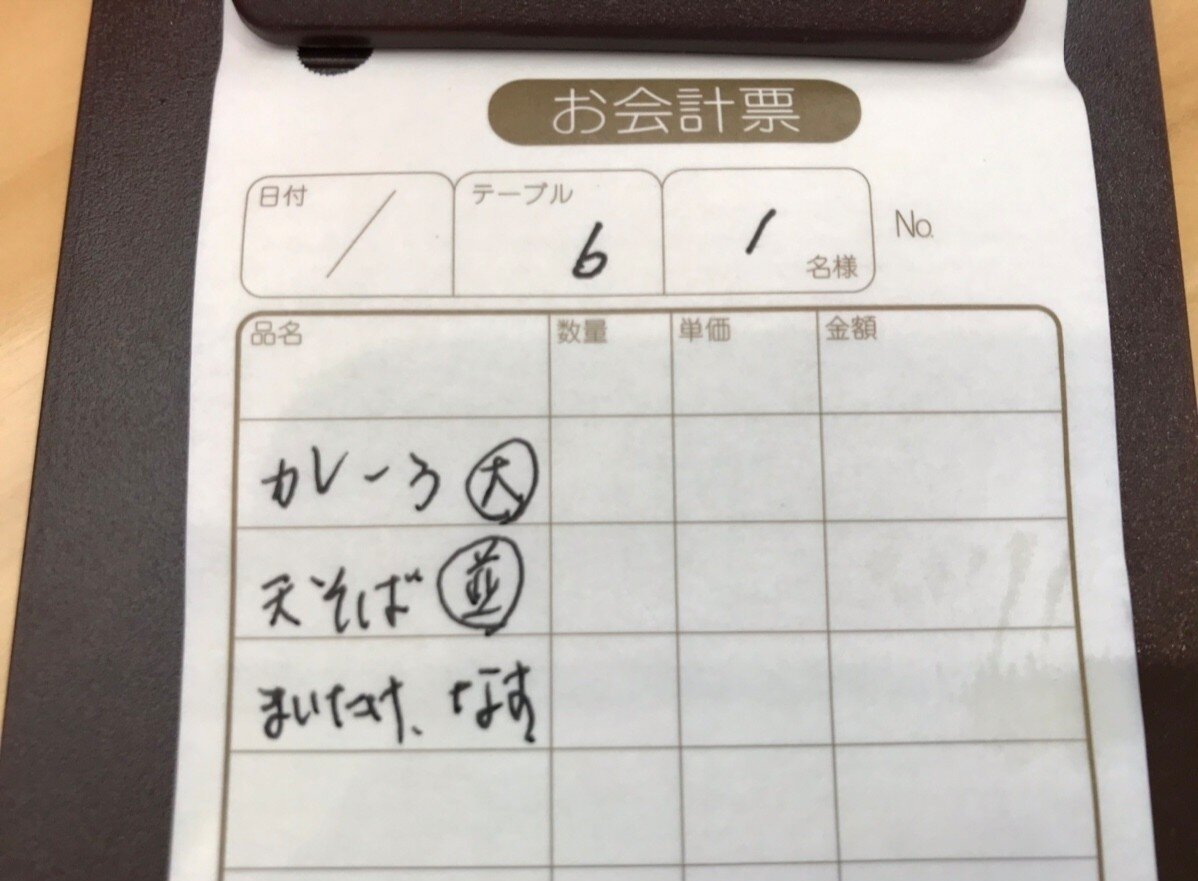 お会計票
日付 / テーブル 6 1 名様 No.
品名 数量 単価 金額
カレーう 大
天そば 並
まいたけ、なす